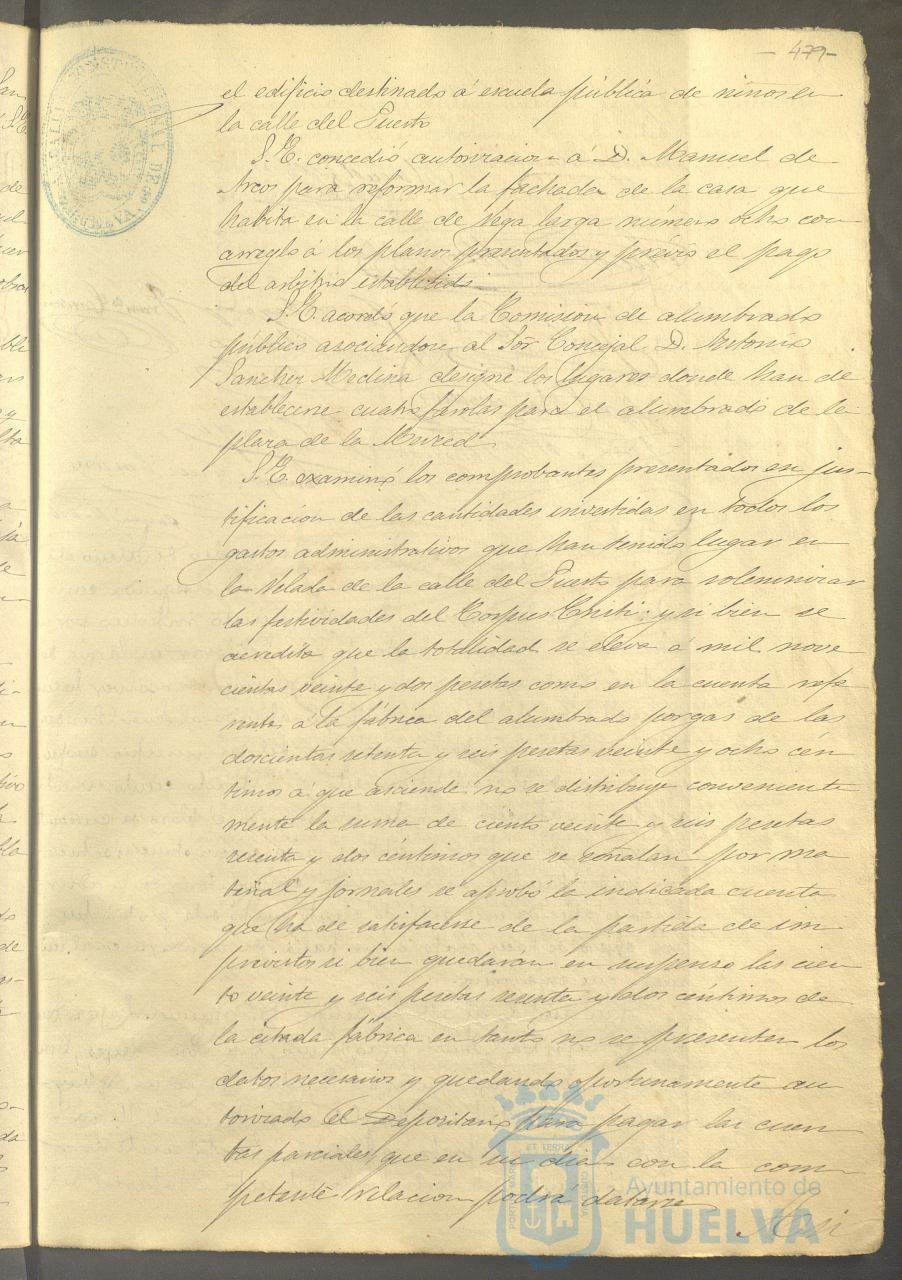 - 479 -
el edificio destinado á escuela pública de niños en
la calle del Puerto
S. E. concedió autorizacion á D. Manuel de
Arcos para reformar la fachada de la casa que
habita en la calle de Vega larga número ocho con
arreglo á los planos presentados y previo el pago
del arbitrio establecido.
S. E. acordó que la Comision de alumbrado
público asociandose al Sor Concejal D. Antonio
Sanchez Medina designe los lugares donde han de
establecerse cuatro farolas para el alumbrado de la
plaza de la Merced
S. E. examinó los comprobantes presentados en jus-
tificacion de las cantidades invertidas en todos los
gastos administrativos que han tenido lugar en
la Velada de la calle del Puerto para solemnizar
las festividades del Corpus Cristi: y si bien se
acredita que la totalidad se eleva á mil nove
cientas veinte y dos pesetas como en la cuenta refe
rente á la fábrica del alumbrado por gas de las
doscientas setenta y seis pesetas veinte y ocho cén
timos á que asciende no se distribuye conveniente
mente la suma de ciento veinte y seis pesetas
sesenta y dos céntimos que se señalan por ma
terial y jornales se aprobó la indicada cuenta
que ha de satisfacerse de la partida de im
previstos si bien quedaran en suspenso las cien
to veinte y seis pesetas sesenta y dos céntimos de
la citada fábrica en tanto no se presenten los
datos necesarios y quedando oportunamente au
torizado el Depositario para pagar las cuen
tas parciales que en su dia con la com
petente relacion podrá datarse
Asi
Ayuntamiento de
HUELVA